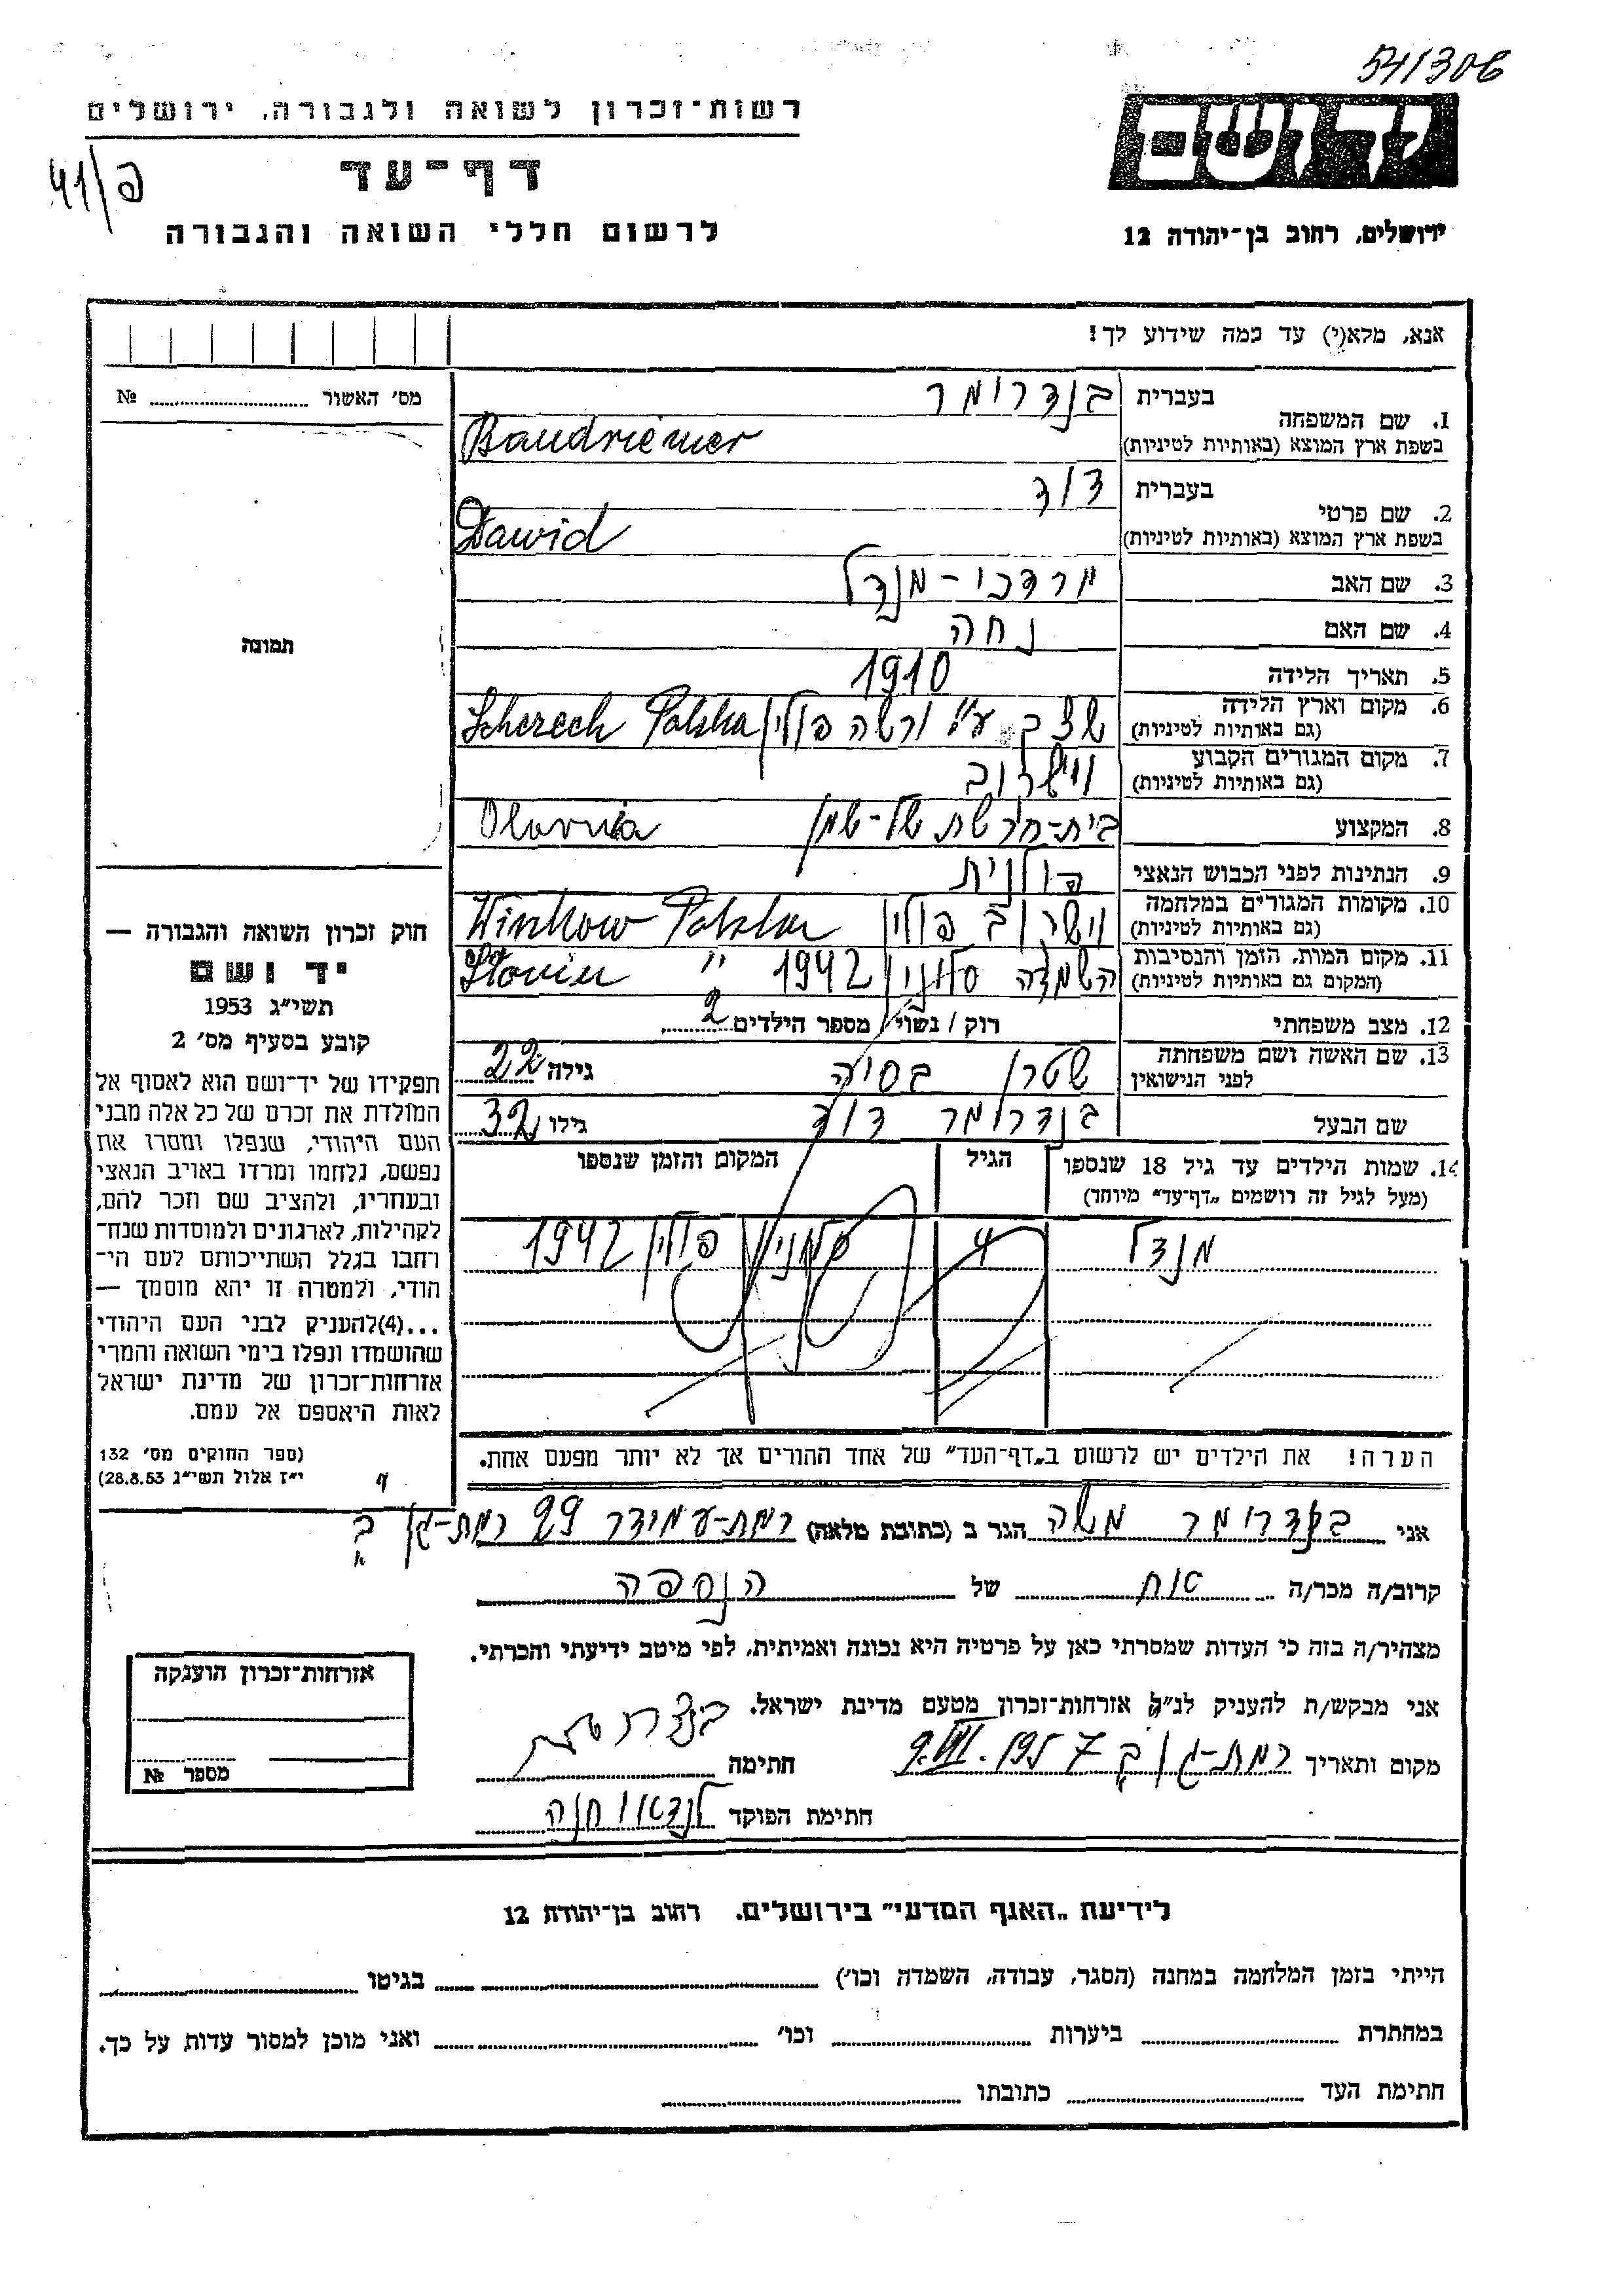 54/306
רשות-זכרון לשואה ולגבורה, ירושלים
41/פ
דף-עד
לרשום חללי השואה והגבורה
ידושם
ירושלים, רחוב בן-יהודה 12
אנא, מלא(י) עד כמה שידוע לך!
מס' האשור № ........
תמונה
1. שם המשפחה בעברית בנדרומר
בשפת ארץ המוצא (באותיות לטיניות) Baudriemer
2. שם פרטי בעברית דוד
בשפת ארץ המוצא (באותיות לטיניות) Dawid
3. שם האב מרדכי - מנדל
4. שם האם נחה
5. תאריך הלידה 1910
6. מקום וארץ הלידה (גם באותיות לטיניות) ע"י ורשה פולין Polska
7. מקום המגורים הקבוע (גם באותיות לטיניות) וישקוב
8. המקצוע בית-חרשת של-שמן
9. הנתינות לפני הכבוש הנאצי פולנית
10. מקומות המגורים במלחמה (גם באותיות לטיניות) פולין Polska
11. מקום המות, הזמן והנסיבות (המקום גם באותיות לטיניות) השמדה סלונין 1942 "
12. מצב משפחתי רוק / נשוי / מספר הילדים 2
13. שם האשה ושם משפחתה לפני הנישואין שטרן בסיה גילה 22
שם הבעל בנדרומר דוד גילו 32
14. שמות הילדים עד גיל 18 שנספו (מעל לגיל זה רושמים "דף-עד" מיוחד) הגיל המקום והזמן שנספו
מנדל 4 סלונין פולין 1942
הערה! את הילדים יש לרשום ב"דף-העד" של אחד ההורים אך לא יותר מפעם אחת.
חוק זכרון השואה והגבורה —
יד ושם
תשי"ג 1953
קובע בסעיף מס' 2
תפקידו של יד-ושם הוא לאסוף אל
המולדת את זכרם של כל אלה מבני
העם היהודי, שנפלו ומסרו את
נפשם, נלחמו ומרדו באויב הנאצי
ובעוזריו, ולהציב שם וזכר להם,
לקהילות, לארגונים ולמוסדות שנח-
רחבו בגלל השתייכותם לעם הי-
הודי, ולמטרה זו יהא מוסמך —
...(4)להעניק לבני העם היהודי
שהושמדו ונפלו בימי השואה והמרי
אזרחות-זכרון של מדינת ישראל
לאות היאספם אל עמם.
(ספר החוקים מס' 132
י"ז אלול תשי"ג 28.8.53)
אני בנדרומר משה הגר ב (כתובת מלאה) רמת-עמידר 29 רמת-גן
קרוב/ה מכר/ה אח של הנספה
מצהיר/ה בזה כי העדות שמסרתי כאן על פרטיה היא נכונה ואמיתית, לפי מיטב ידיעתי והכרתי.
אני מבקש/ת להעניק לנ"ל אזרחות-זכרון מטעם מדינת ישראל.
מקום ותאריך רמת-גן 9.VII.1957 חתימה
חתימת הפוקד לנדאו חנה
אזרחות-זכרון הוענקה
מספר №
לידיעת "האגף המדעי" בירושלים, רחוב בן-יהודה 12
הייתי בזמן המלחמה במחנה (הסגר, עבודה, השמדה וכו') ........ בגיטו ........
במחתרת ........ ביערות ........ וכו' ........ ואני מוכן למסור עדות על כך.
חתימת העד ........ כתובתו ........